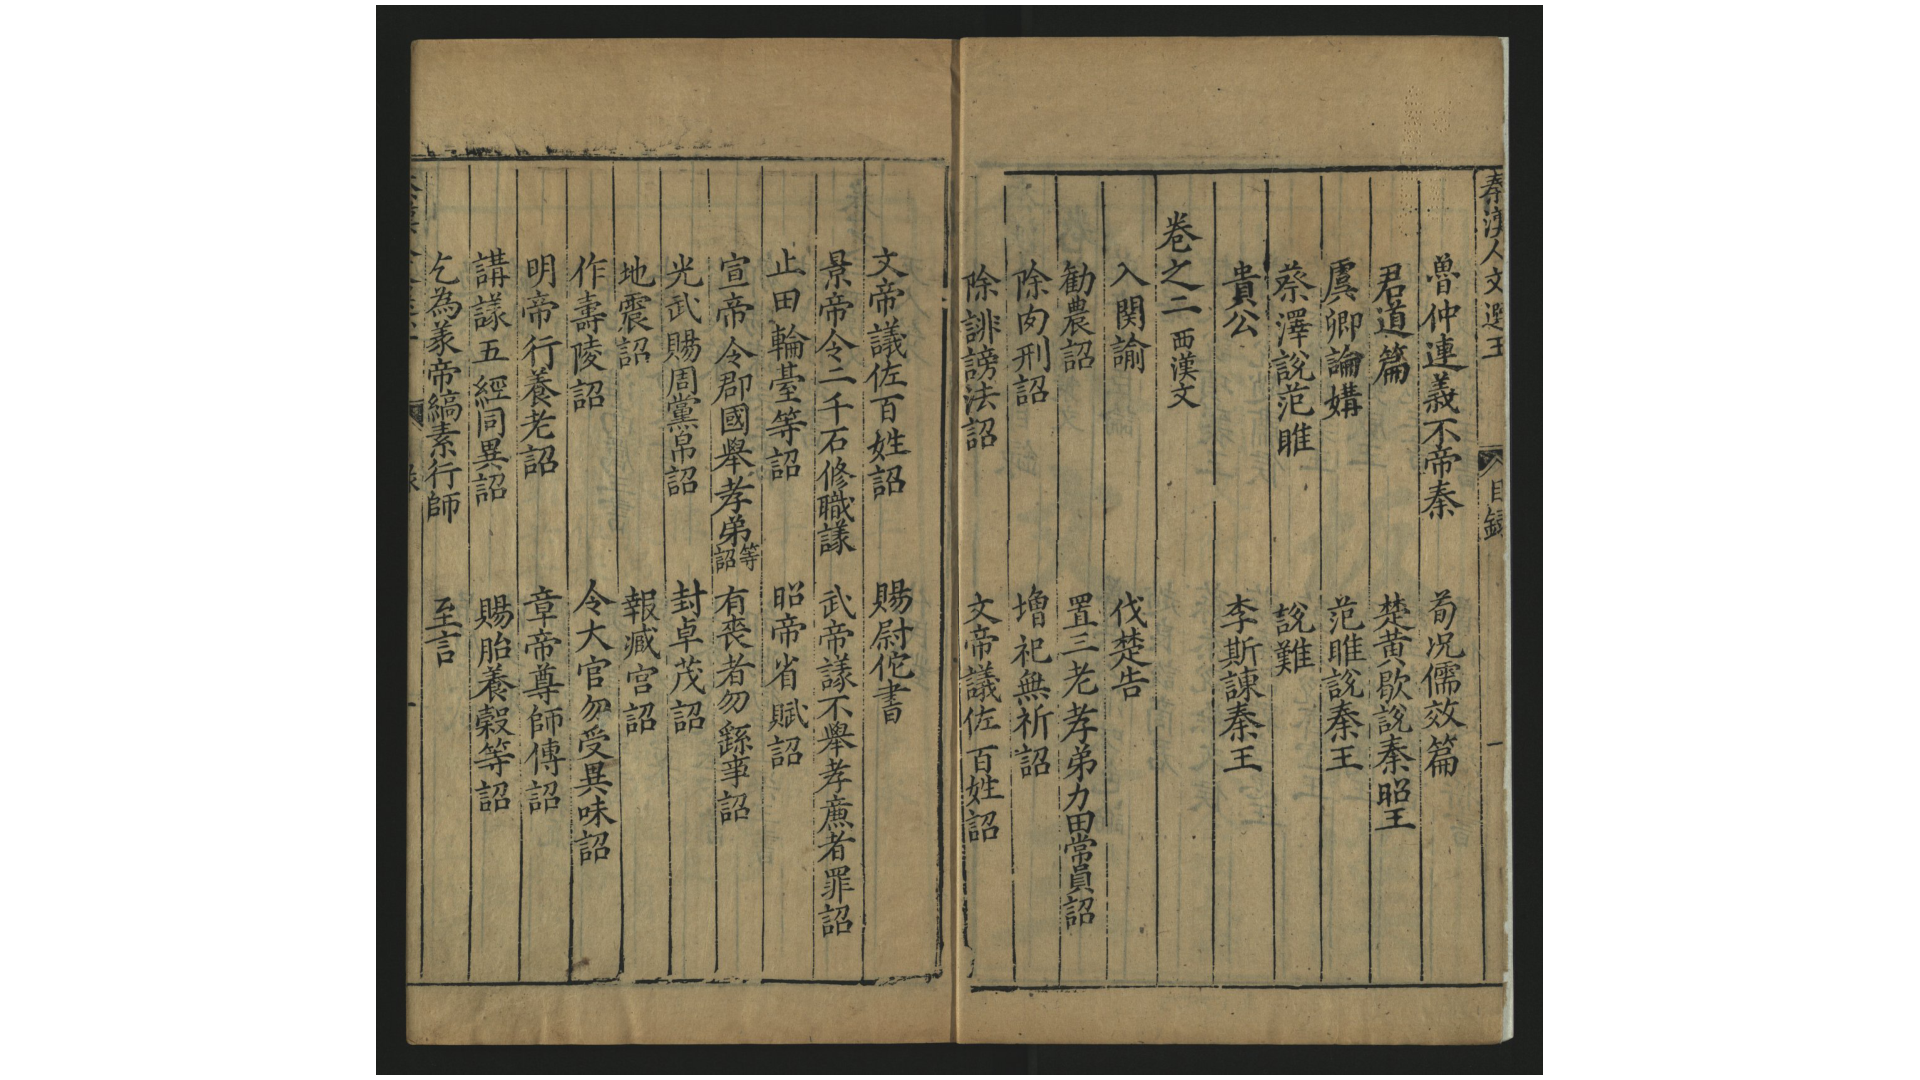 秦漢人文選玉 目録 一
魯仲連義不帝秦 荀况儒效篇
君道篇 楚黄歇說秦昭王
虞卿論媾 范睢說秦王
蔡澤說范睢 說難
貴公 李斯諫秦王
卷之二 西漢文
入関諭 伐楚告
勸農詔 置三老孝弟力田常員詔
除肉刑詔 增祀無祈詔
除誹謗法詔 文帝議佐百姓詔
文帝議佐百姓詔 賜尉佗書
景帝令二千石修職詔 武帝議不舉孝廉者罪詔
止田輪臺等詔 昭帝省賦詔
宣帝令郡國舉孝弟等詔 有喪者勿繇事詔
光武賜周黨帛詔 封卓茂詔
地震詔 報臧宮詔
作壽陵詔 令大官勿受異味詔
明帝行養老詔 章帝尊師傅詔
講議五經同異詔 賜胎養穀等詔
乞為義帝縞素行師 至言